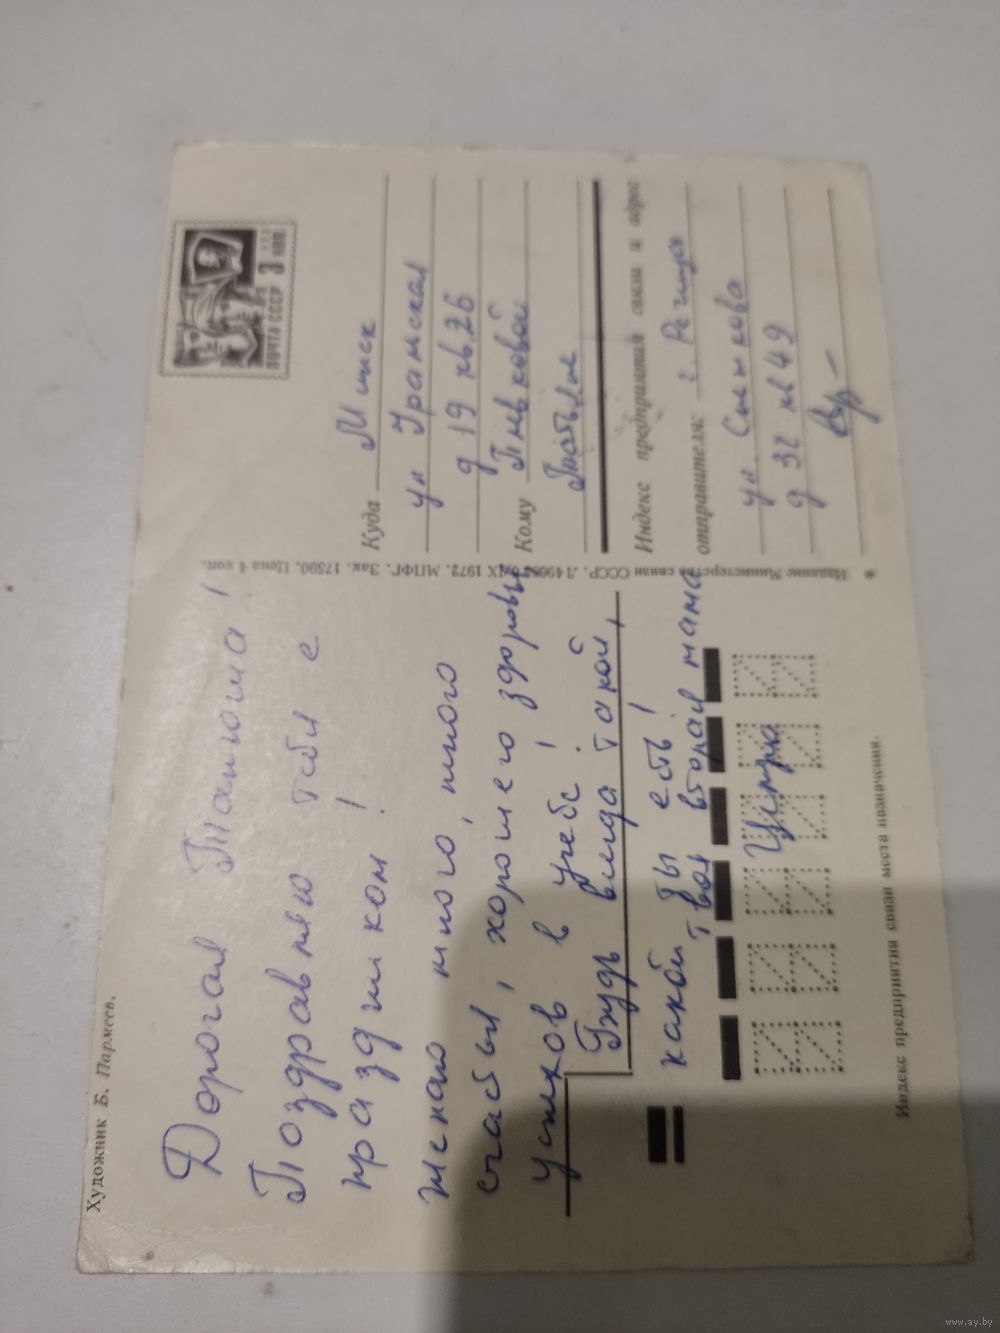 Художник Б. Пармеев.
Дорогая Танюша!
Поздравляю тебя с
праздником!
желаю много, много
счастья, хорошего здоровья
успехов в учебе!
Будь всегда такой,
какой ты есть!
твоя вторая мама
Индекс предприятия связи места назначения.
Издание Министерства связи СССР. 1972. МПФГ. Зак. 17590. Цена 4 коп.
ПОЧТА СССР 3 КОП
Куда Минск
ул Уральская
д 19 кв. 26
Кому
Индекс предприятия связи и адрес
отправителя: г. Речица
ул.
д 32 кв 49
www.ay.by